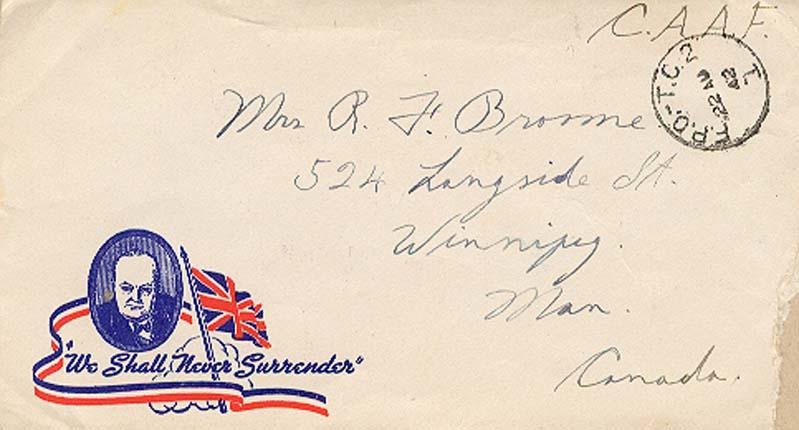 C.A.A.F.
F.P.O.-T.C.2
22 AU
42
T.
Mrs R. F. Broome
524 Langside St.
Winnipeg.
Man.
Canada.
"We Shall Never Surrender"